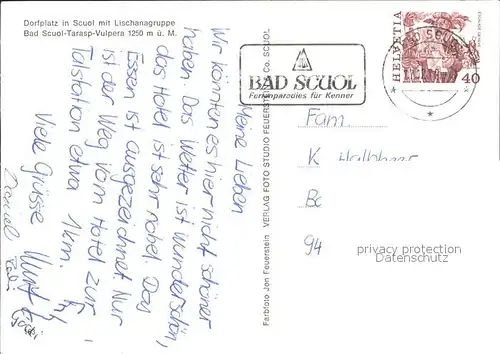 Dorfplatz in Scuol mit Lischanagruppe
Bad Scuol-Tarasp-Vulpera 1250 m ü. M.
Meine Lieben
Wir könnten es hier nicht schöner
haben. Das Wetter ist wunderschön,
das Hotel ist sehr nobel. Das
Essen ist ausgezeichnet. Nur
ist der Weg vom Hotel zur
Talstation etwa 1km.
Viele Grüsse
Daniel
Farbfoto Jon Feuerstein VERLAG FOTO STUDIO FEUERSTEIN Co. SCUOL
BAD SCUOL
Ferienparadies für Kenner
BAD SCUOL
HELVETIA
40
Fam
K
94
privacy protection
Datenschutz